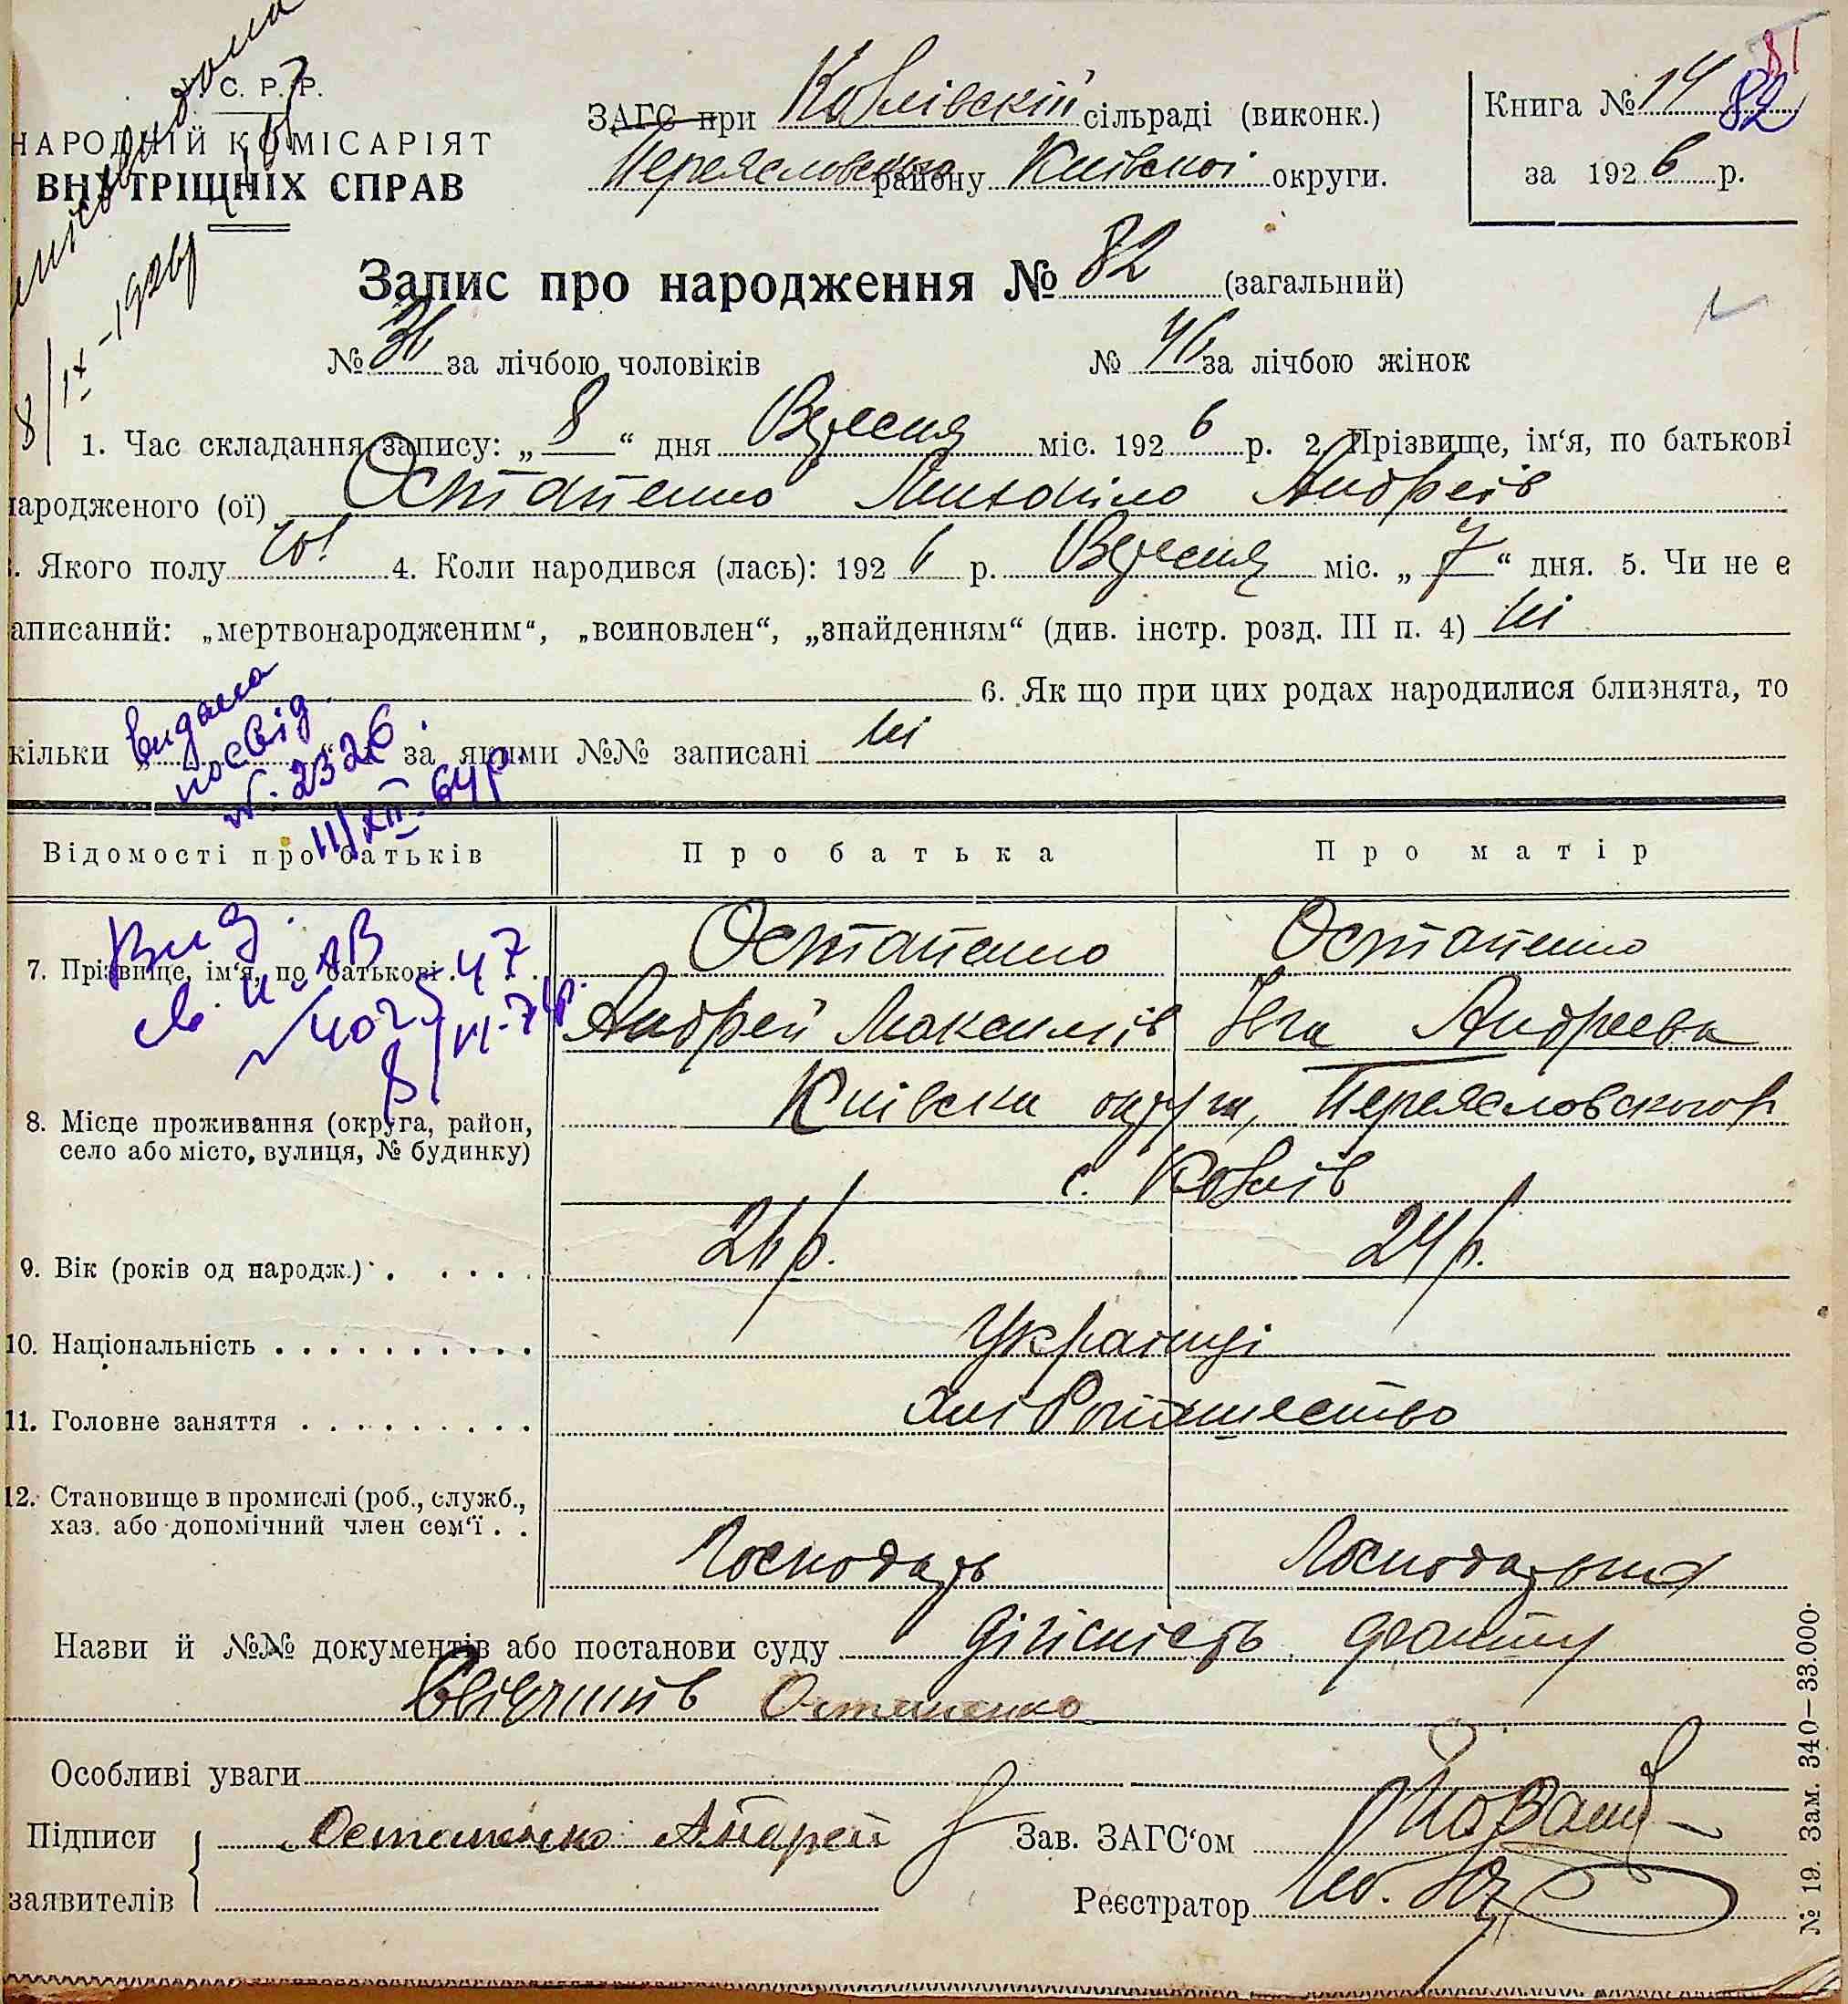 У. С. Р. Р.
НАРОДНІЙ КОМІСАРІЯТ
ВНУТРІЩНІХ СПРАВ
8/IX-1926р
ЗАГС при Ковлівскій сільраді (виконк.)
Переясловського району Київської округи.
Книга № 14
81
82
за 1926 р.
Запис про народження № 82 (загальний)
№ 36 за лічбою чоловіків
№ 46 за лічбою жінок
1. Час складання запису: „8“ дня Вересня міс. 1926 р. 2. Прізвище, ім‘я, по батькові
народженого (ої) Остапенко Михайло Андреів
3. Якого полу чол 4. Коли народився (лась): 1926 р. Вересня міс. „7“ дня. 5. Чи не є
записаний: „мертвонародженим“, „всиновлен“, „знайденням“ (див. інстр. розд. III п. 4) ні
6. Як що при цих родах народилися близнята, то
кільки „ “ за якими №№ записані ні
видана
посвід.
№. 2326.
11/XII-64р.
Відомості про батьків
Про батька
Про матір
Вид.
№4025
8/VI-74р.
7. Прізвище, ім‘я, по батькові
Остапенко
Остапенко
Андрей Максимів
Ївга Андреева
8. Місце проживання (округа, район,
село або місто, вулиця, № будинку)
Київска округа, Переясловского р
с. Ковлів
9. Вік (років од народж.)
24р.
10. Національність
Українці
11. Головне заняття
Хліборобтшество
12. Становище в промислі (роб., служб.,
хаз. або допомічний член сем‘ї
Господарь
Господарька
Назви й №№ документів або постанови суду дійсність факту
Свідчитв Остапенко
Особливі уваги
Підписи
заявителів
Остапенко Андрей
Зав. ЗАГС‘ом
Реєстратор
№ 19. Зам. 340—33.000.